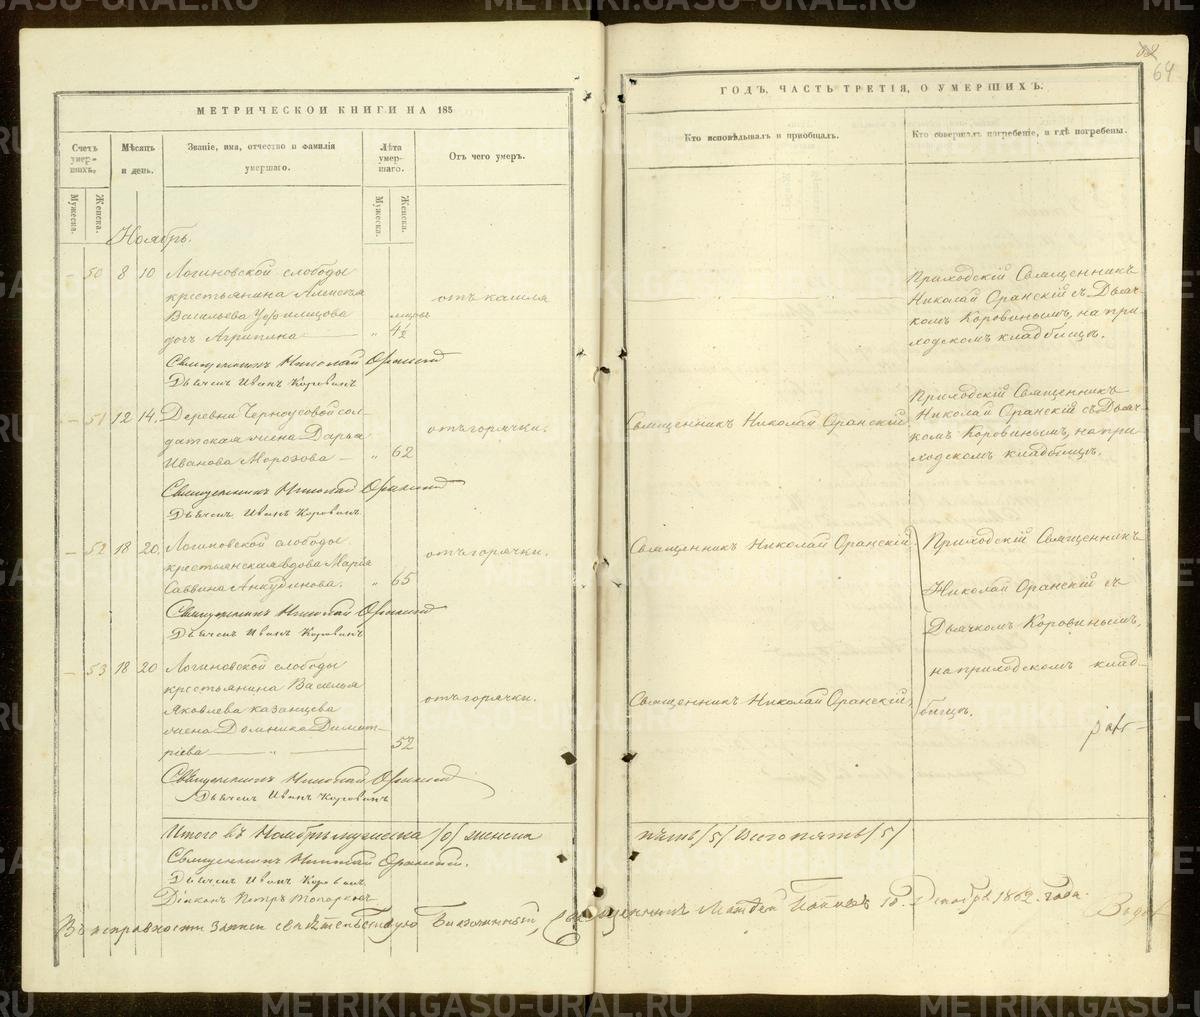 МЕТРИЧЕСКОЙ КНИГИ НА 185
ГОДЪ, ЧАСТЬ ТРЕТІЯ, О УМЕРШИХЪ.
64
Счетъ умер-шихъ.
Мужеска.
Женска.
Мѣсяцъ и день.
Званіе, имя, отчество и фамилія умершаго.
Лѣта умер-шаго.
Мужеска.
Женска.
Отъ чего умеръ.
Кто исповѣдывалъ и пріобщалъ.
Кто совершалъ погребеніе, и гдѣ погребены.
Ноябрь.
— 50 8 10 Логиновской слободы
крестьянина Алексѣя
Васильева
дочь Агрипина — „ 4½
отъ кашля
Приходскій Священникъ
Николай Оранскій съ Дьяч-
комъ Коровинымъ, на при-
ходскомъ кладбищѣ.
Священникъ Николай Оранскій
Дьячекъ Иванъ Коровинъ
— 51 12 14. Деревни Черноусовой сол-
датская жена Дарья
Иванова Морозова — „ 62
отъ горячки.
Священникъ Николай Оранскій
Приходскій Священникъ
Николай Оранскій съ Дьяч-
комъ Коровинымъ, на при-
ходскомъ кладбищѣ.
Священникъ Николай Оранскій
Дьячекъ Иванъ Коровинъ
— 52 18 20. Логиновской слободы
крестьянская вдова Марія
Саввина Анкудинова. „ 65
отъ горячки.
Священникъ Николай Оранскій
Приходскій Священникъ
Николай Оранскій съ
Дьячкомъ Коровинымъ,
на приходскомъ клад-
бищѣ.
Священникъ Николай Оранскій
Дьячекъ Иванъ Коровинъ
— 53 18 20 Логиновской слободы
крестьянина Василья
Яковлева Казанцева
жена Домника Димит-
ріева — „ — 52
отъ горячки.
Священникъ Николай Оранскій
Священникъ Николай Оранскій
Дьячекъ Иванъ Коровинъ
Итого въ Ноябрѣ мужеска /0/ женска пять /5/ всего пять /5/
Священникъ Николай Оранскій.
Дьячекъ Иванъ Коровинъ
Діаконъ Петръ Топорковъ
Въ исправности записи свидѣтельствую Благочинный, Священникъ Поповъ 10. Декабря 1862. года.
METRIKI.GASO-URAL.RU